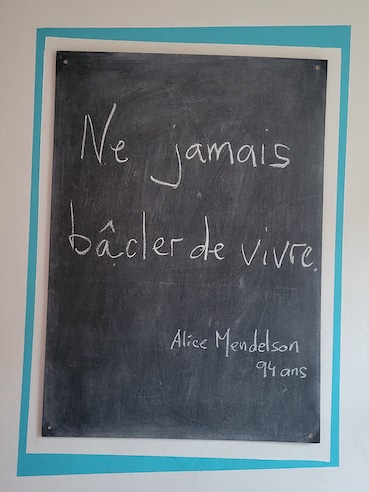 Ne jamais
bâcler de vivre.
Alice Mendelson
94 ans